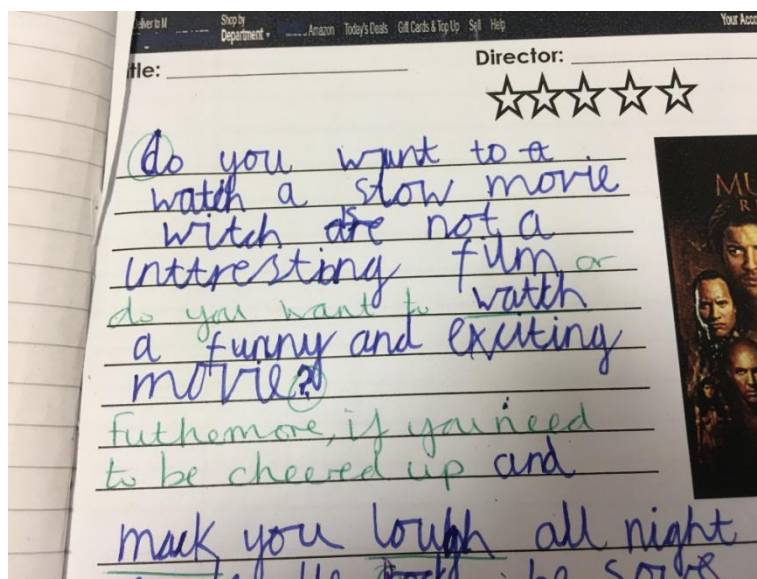 Deliver to M
Shop by
Department
Amazon Today's Deals Gift Cards & Top Up Sell Help
Your Acco
itle:
Director:
do you want to a
watch a slow movie
witch is not a
inttresting film or
do you want to watch
a funny and exciting
movie?
Futhemore, if you need
to be cheered up and
mack you lough all night
be
MU
R